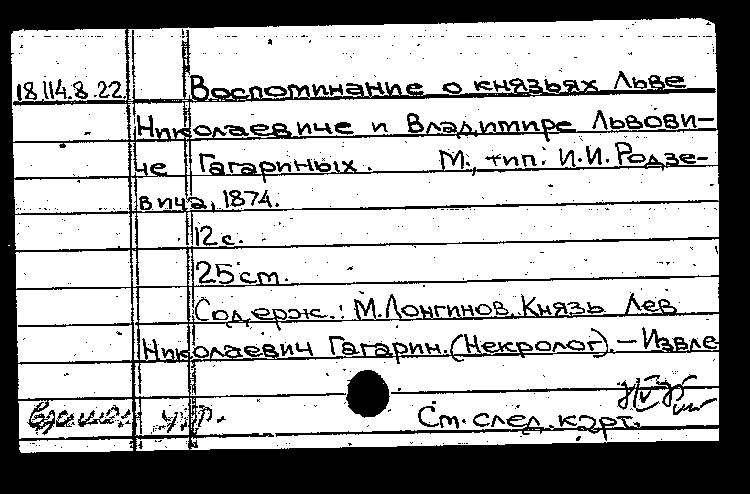 18.114.8.22 Воспоминание о князьях Льве
Николаевиче и Владимире Львови-
че Гагариных. М., тип. И.И. Родзе-
вича, 1874.
12 с.
25 см.
Содерж.: М. Лонгинов. Князь Лев
Николаевич Гагарин. (Некролог). – Извле
См. след. карт.